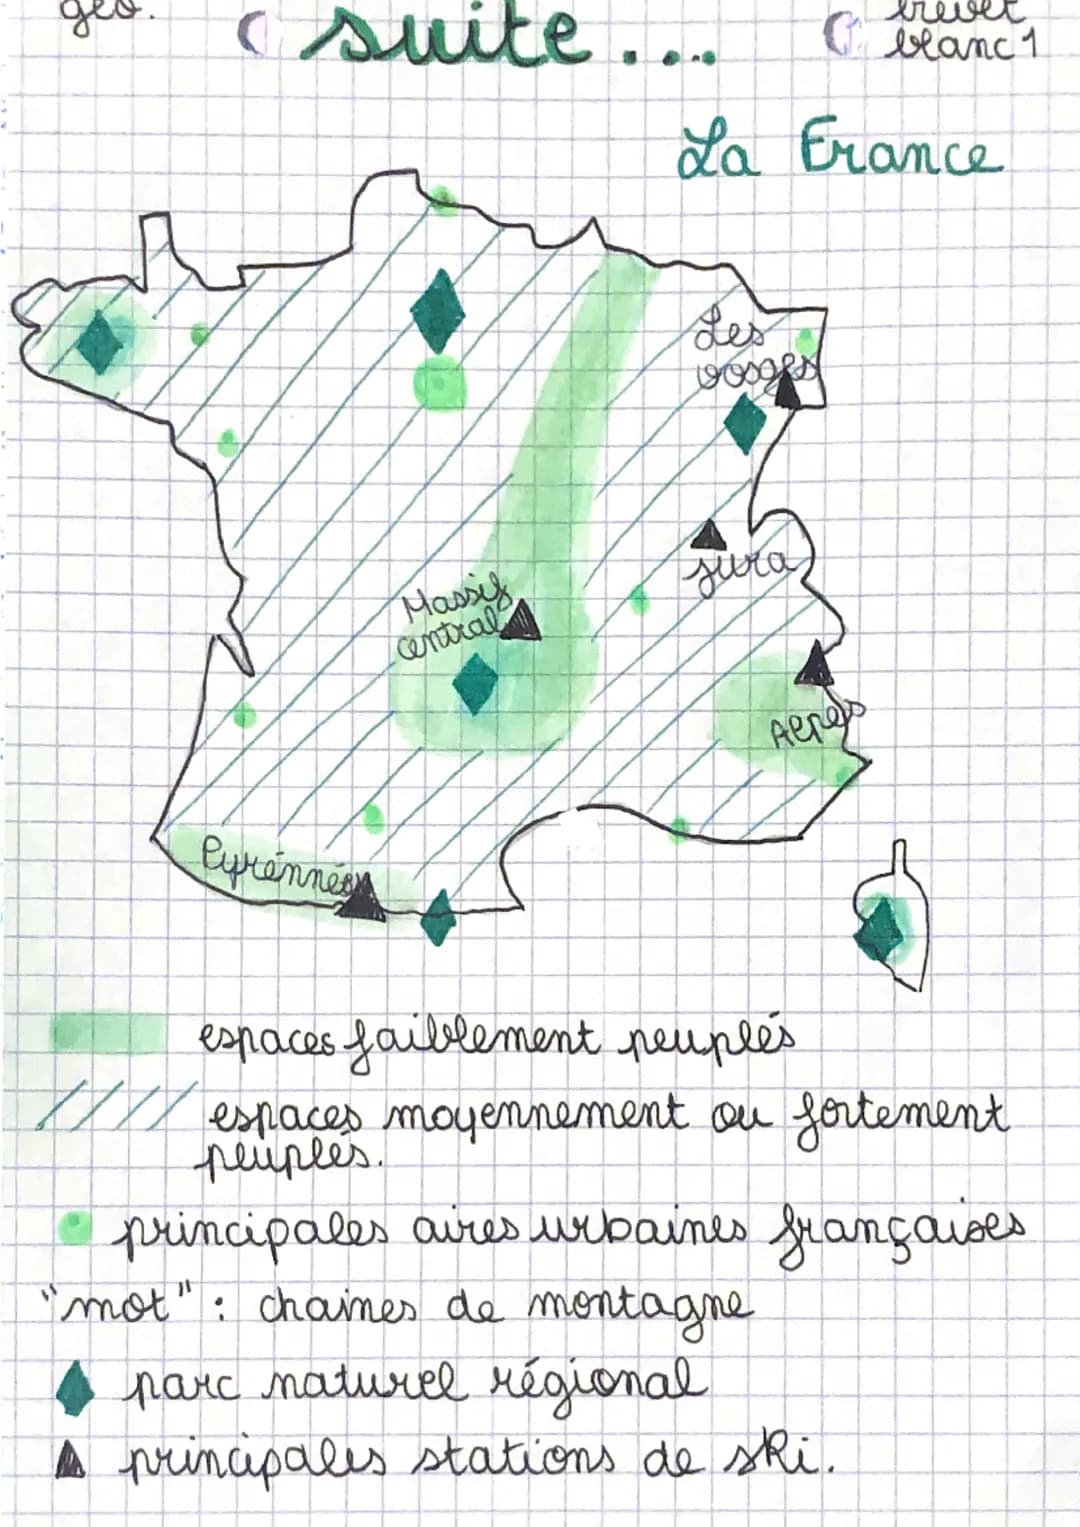 géo.
suite....
brevet
blanc 1
La France
Les
vosges
jura
Massif
central
Alpes
Pyrénnées
espaces faiblement peuplés
espaces moyennement ou fortement
peuplés.
principales aires urbaines françaises
"mot" : chaines de montagne
parc naturel régional
principales stations de ski.